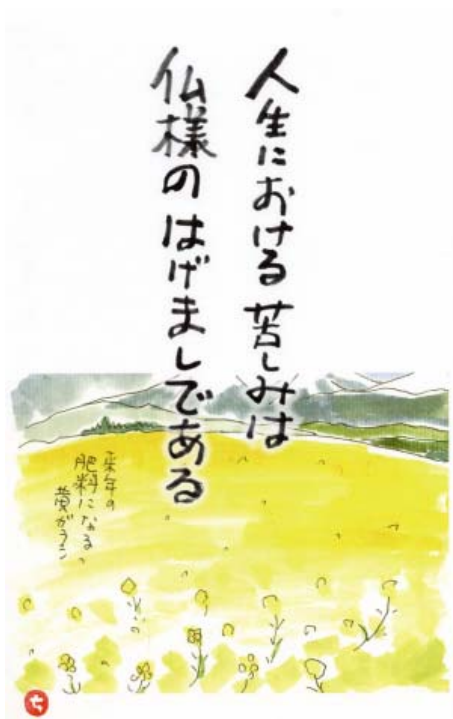 人生における苦しみは
仏様のはげましである
来年の
肥料になる、
黄がラシ
ち